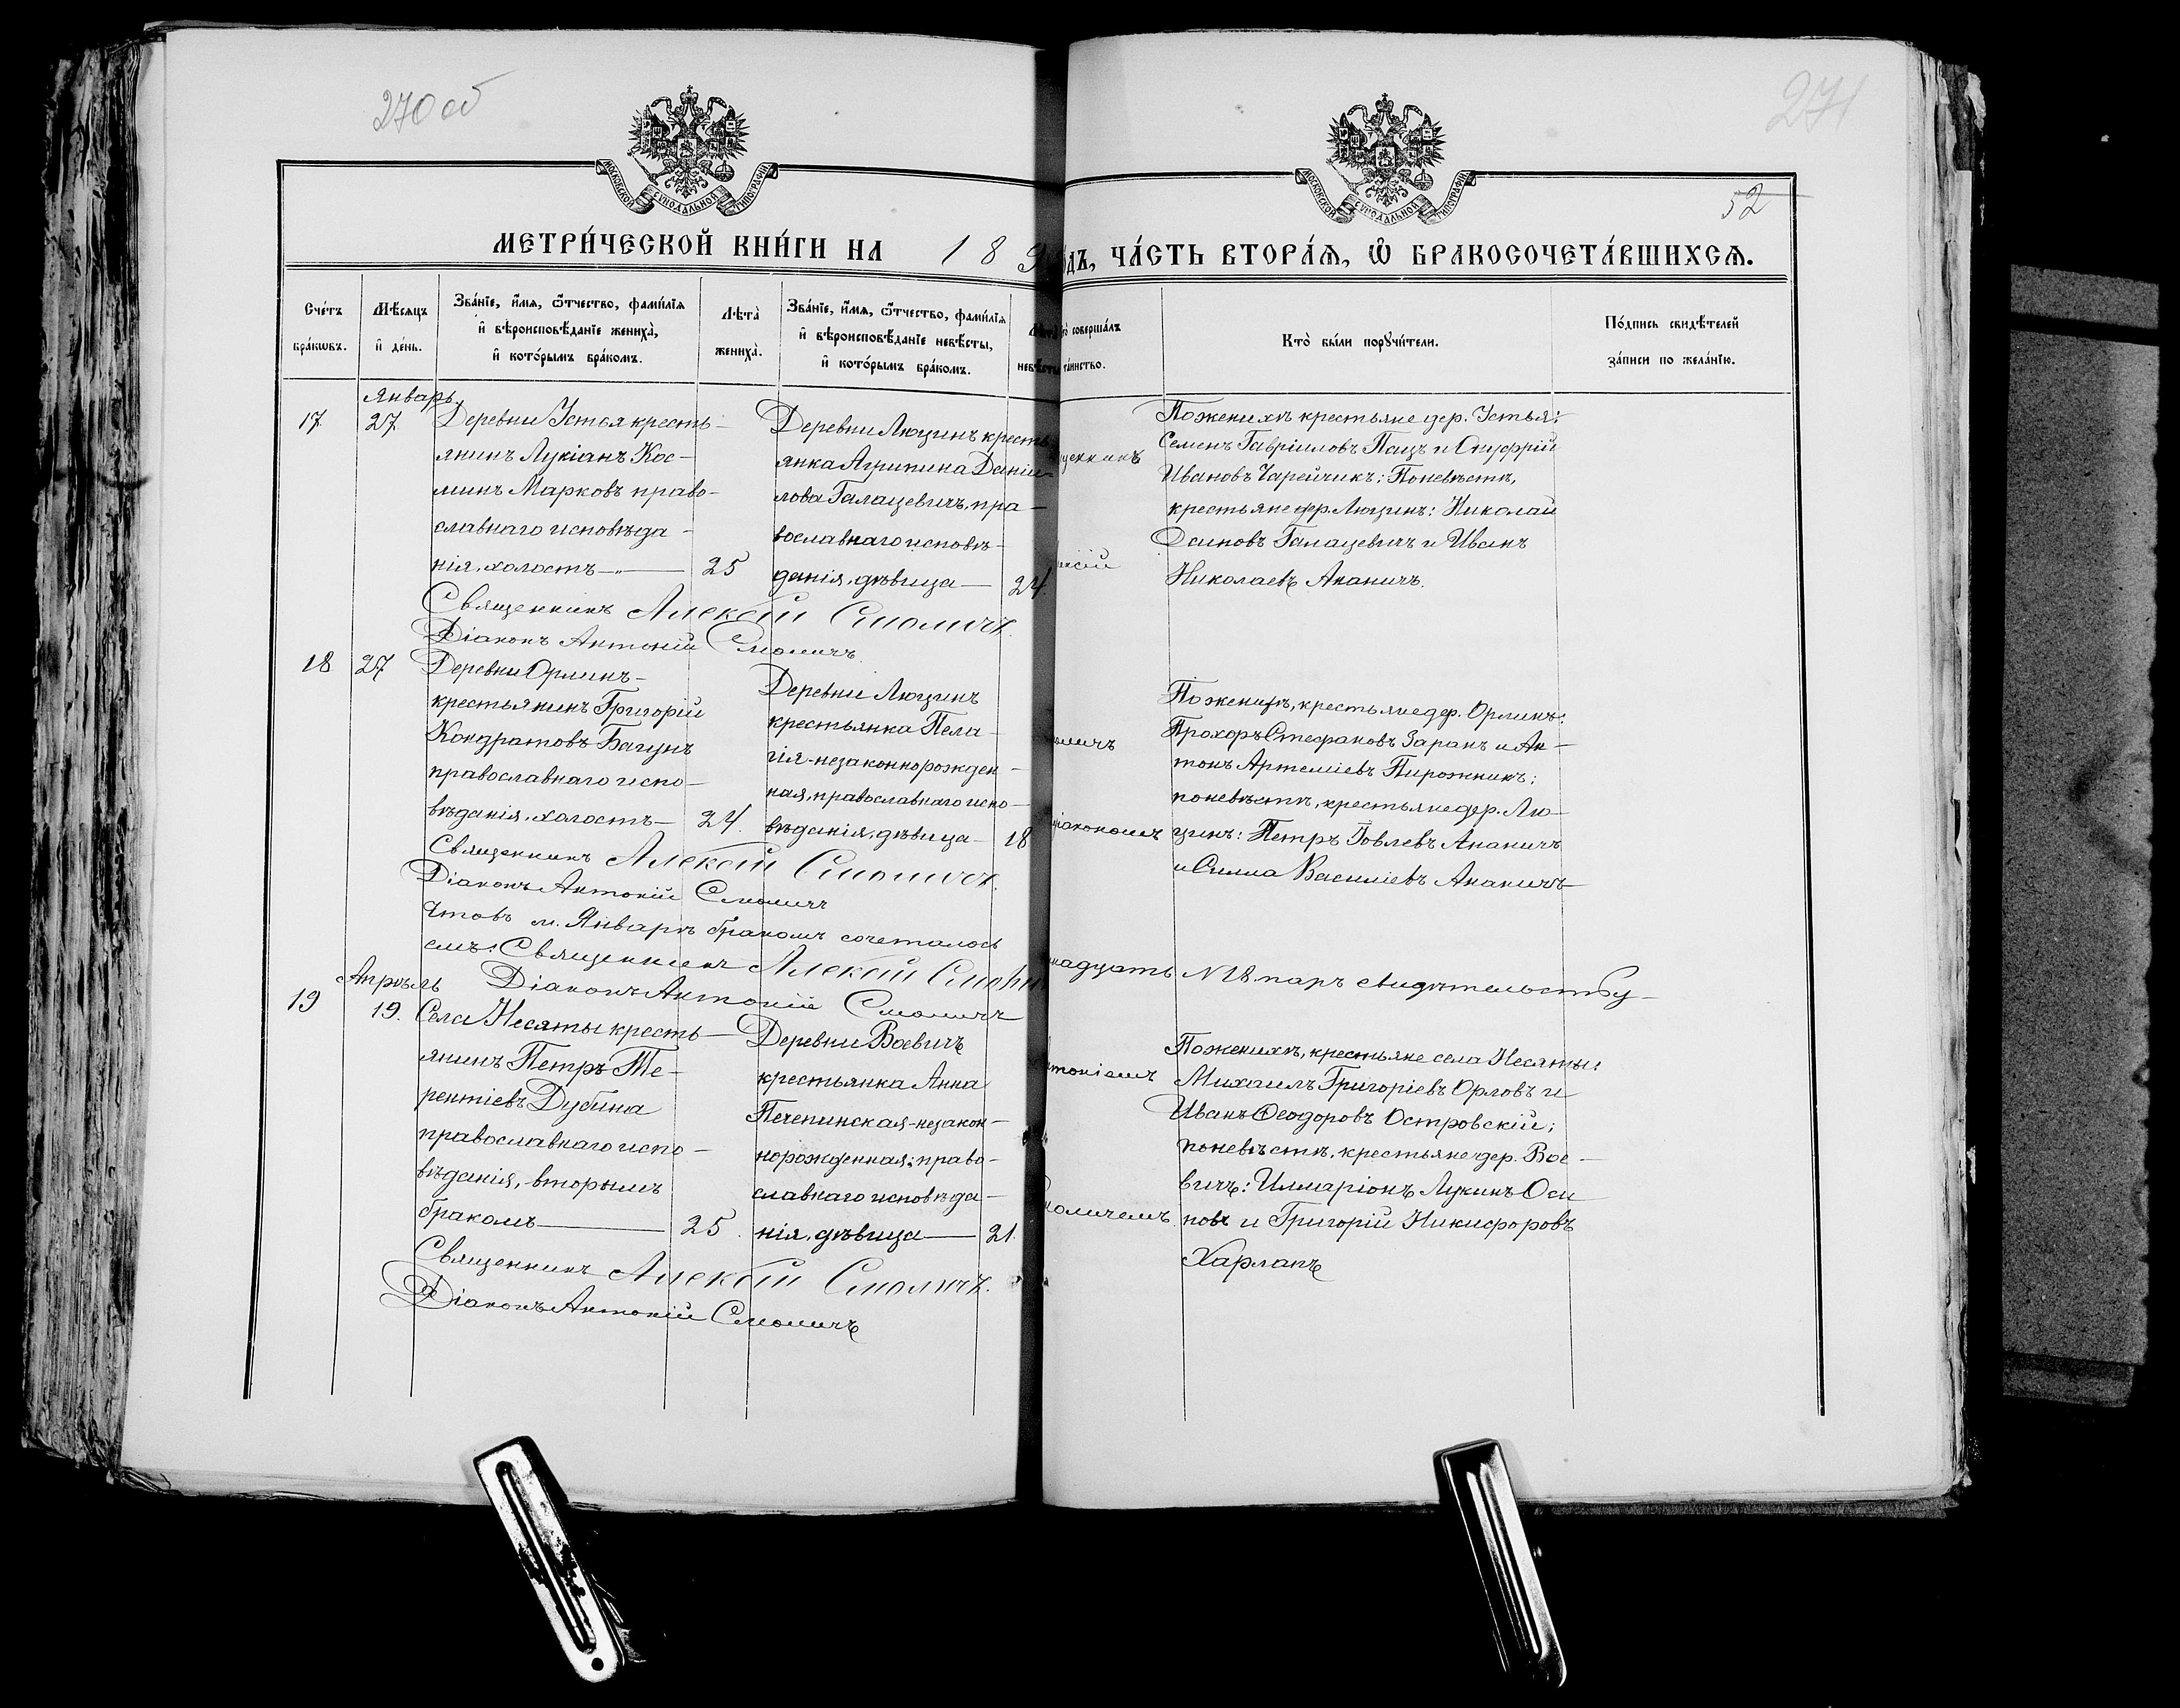 270 об
271
52
МОСКОВСКОЙ СѴНОДАЛЬНОЙ ТИПОГРАФІИ
МОСКОВСКОЙ СѴНОДАЛЬНОЙ ТИПОГРАФІИ
МЕТРИ́ЧЕСКОЙ КНИ́ГИ НА 189
ДЪ, ЧА́СТЬ ВТОРА́Ѧ, Ѽ БРАКОСОЧЕТА́ВШИХСѦ.
Сче́тъ бра́кѡвъ.
Мѣ́сяцъ и҆ де́нь.
Зва́нїе, и҆́мя, ѻ҆́тчество, фами́лїя
и҆ вѣроисповѣ́данїе жениха̀,
и҆ кото́рымъ бра́комъ.
Лѣта̀ жениха̀.
Зва́нїе, и҆́мя, ѻ҆́тчество, фами́лїя
и҆ вѣроисповѣ́данїе невѣ́сты,
и҆ кото́рымъ бра́комъ.
Лѣта̀ невѣ́сты
то̀ соверша́лъ
та́инство.
Кто̀ бы́ли порꙋчи́тели.
По́дпись свидѣ́телей
за́писи по жела́нїю.
Январь
17 27
Деревни Устья кресть-
янинъ Лукіанъ Кос-
минъ Марковъ право-
славнаго исповѣда-
нія, холостъ 25
Деревни Люцинъ кресть-
янка Агрипина Даніи-
лова Галацевичъ, пра-
вославнаго исповѣ-
данія, дѣвица 24
щенникъ
ксій
По женихѣ крестьяне дер. Устья:
Семенъ Гавріиловъ Пацъ и Онуфрій
Ивановъ Чарейчикъ; По невѣстѣ,
крестьяне дер. Люцинъ: Николай
Осиповъ Галацевичъ и Иванъ
Николаевъ Ананичъ.
Священникъ Алексій Смоличъ.
Діаконъ Антоній Смоличъ.
18 27
Деревни Орлинъ
крестьянинъ Григорій
Кондратовъ Багунъ
православнаго испо-
вѣданія, холостъ 24.
Деревни Люцинъ
крестьянка Пела-
гія-незаконнорожден-
ная, православнаго испо-
вѣданія, дѣвица 18
оличъ
діакономъ
По женихѣ, крестьяне дер. Орлинъ:
Прохоръ Стефановъ Заранъ и Ан-
тонъ Артеміевъ Пирожникъ;
по невѣстѣ, крестьяне дер. Лю-
цинъ: Петръ Іовлевъ Ананичъ
и Силла Василіевъ Ананичъ
Священникъ Алексій Смоличъ.
Діаконъ Антоній Смоличъ
Что въ м. Январѣ бракомъ сочеталось
надцать №18 паръ свидѣтельству-
емъ: Священникъ Алексій Смоли
Діаконъ Антоній Смоличъ
Апрѣль
19 19.
Села Несяты кресть-
янинъ Петръ Те-
рентіевъ Дубина
православнаго испо-
вѣданія, вторымъ
бракомъ 25.
Деревни Воевичъ
крестьянка Анна
Печепинская-незакон-
норожденная; право-
славнаго исповѣда-
нія, дѣвица 21.
нтоніемъ
моличемъ
По женихѣ, крестьяне села Несяты:
Михаилъ Григоріевъ Орловъ и
Иванъ Ѳеодоровъ Островскій;
по невѣстѣ, крестьяне дер. Вое-
вичъ: Илларіонъ Лукинъ Оси
повъ и Григорій Никифоровъ
Харлапъ
Священникъ Алексій Смоличъ.
Діаконъ Антоній Смоличъ